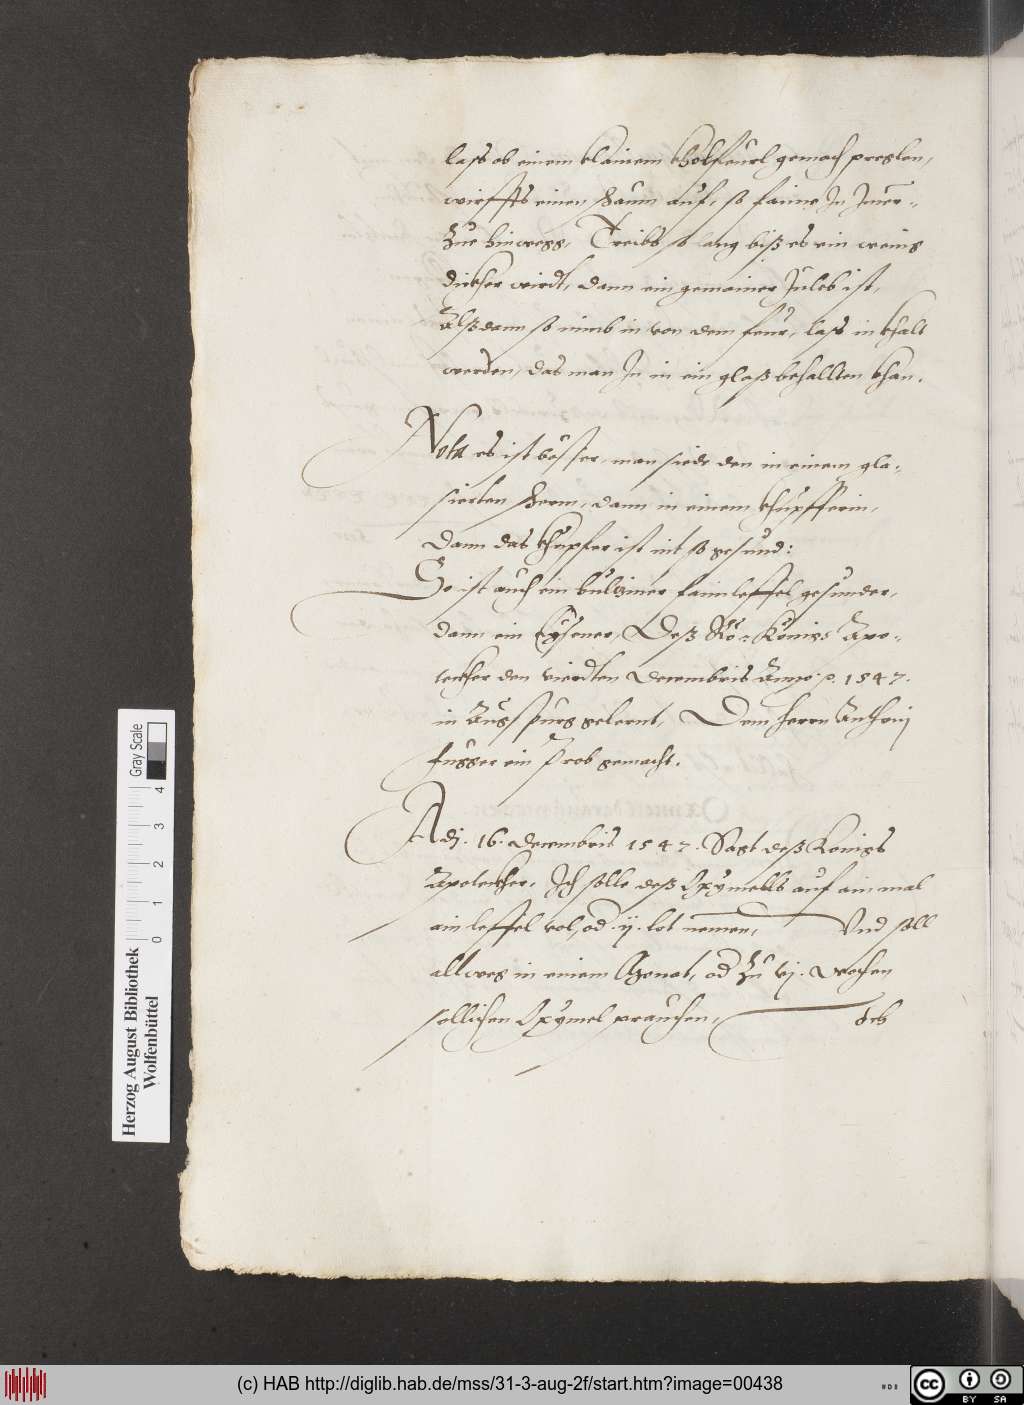 lass ob einem klainem kholfeurl gemach preglen,
wirffts einen Faum auf, so faime In Imer-
Zue hinwegg, Treibs so lang biß es ein wenig
dickher wirdt, dann ein gemainer Juleb ist,
Alßdann so nimb in von dem feur, lass in khalt
werden, das man In in ein glaß behallten khan.
Nota es ist besser, man siede den in einem gla-
sierten scherm, dann in einem khupfferin,
Dann das khupfer ist nit so gesund:
So ist auch ein hultziner faimleffel gesunder,
dann ein Eysener, Deß Rö: Königs Apo-
teckher den vierdten Decembris Anno p. 1547.
in Augspurg gelernt, Dem herrn Anthonj
fugger ein prob gemacht.
Adj. 16. decembris 1547. Sagt deß Konigs
Apoteckher, Ich solle deß Oxymells auf ain mal
ain leffel vol, od ij. lot nemen, Vnd soll
allweg in einem Monat, od Zu vj. wochen
sollichen Oxymel prauchen, deb
Herzog August Bibliothek
Wolfenbüttel
Gray Scale
0 1 2 3 4
(c) HAB http://diglib.hab.de/mss/31-3-aug-2f/start.htm?image=00438
cc BY SA